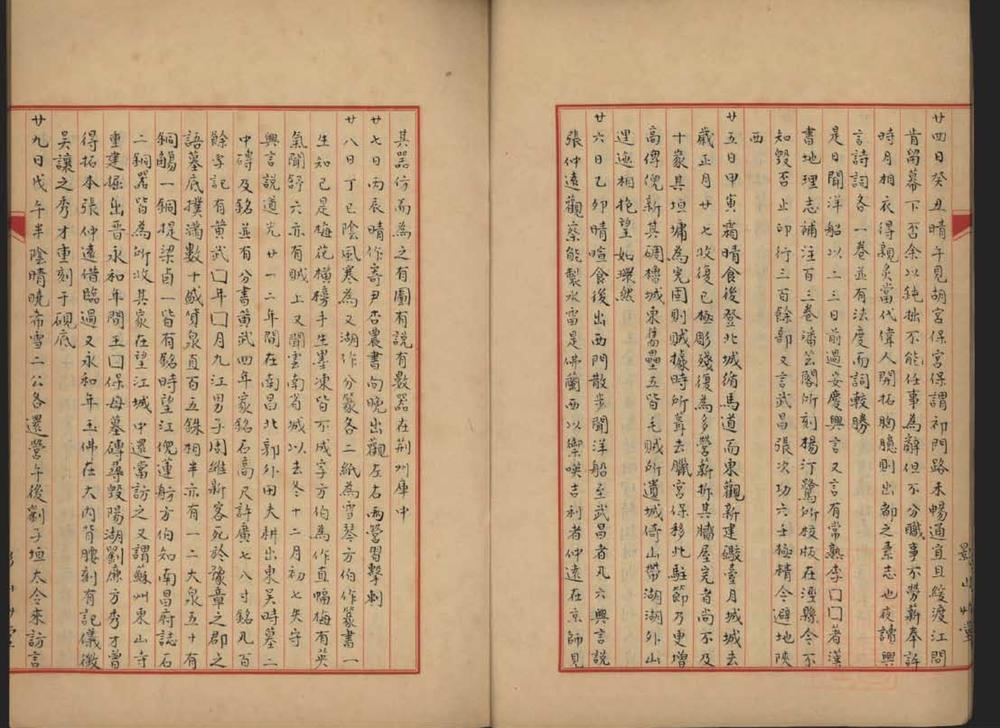 廿四日癸丑晴午見胡宮保宮保謂祁門路未暢通宜且緩渡江問
肯留幕下否余以鈍拙不能任事為辭但不分職事不勞薪奉許
時月相衣得親炙當代偉人開拓胸臆則出都之素志也夜讀興
言詩詞各一卷並有法度而詞較勝
是日聞洋船以二三日前過安慶興言又言有常熟李囗囗著漢
書地理志補注百三卷潘芸閣所刻楊汀鷺所校版在涇縣今不
知毀否止印行三百餘部又言武昌張次功六壬極精今避地陝
西
廿五日甲寅霜晴食後登北城循馬道而東觀新建敵臺月城城去
歲正月廿七收復已極彫殘復為多營薪拆其牆屋完者尚不及
十家其垣墉為完固則賊據時所葺去臘宮保移此駐節乃更增
高俾倪新其碉樓城東舊壘五皆毛賊所遺城倚山帶湖湖外山
迤邐相抱望如環然
廿六日乙卯晴暄食後出西門散步聞洋船至武昌者凡六興言說
張仲遠觀察能製水雷是佛蘭西以禦暎吉利者仲遠在京師見
其器仿而為之有圖有說有數器在荆州庫中
廿七日丙辰晴作寄尹杏農書向晚出觀左右兩營習擊刺
廿八日丁巳陰風寒為又湖作分篆各二紙為雪琴方伯作篆書一
生知己是梅花橫榜手生墨凍皆不成字方伯為作直幅梅有英
氣聞舒六亦有賊上又聞雲南省城以去冬十二月初七失守
興言說道光廿一二年間在南昌北郭外田夫耕出東吳時墓二
中磚及銘並有分書黃武四年冢銘石高尺許廣七八寸銘凡百
餘字記有黃武囗年囗月九江男子周維新客死於豫章之郡之
語墓底撲滿數十盛貨泉直百五銖相半亦有一二大泉五十有
銅觴一銅提梁卣一皆有銘時望江倪蓮舫方伯知南昌府誌石
二銅器皆為所收其家在望江城中還當訪之又謂蘇州東山寺
重建掘出晉永和年間王囗保母墓磚尋毀陽湖劉廉方秀才曾
得拓本張仲遠借臨過又永和年玉佛在大內背腰刻有記儀徵
吳讓之秀才重刻于硯底
廿九日戊午半陰晴曉希雪二公各還營午後劉子垣太令來訪言